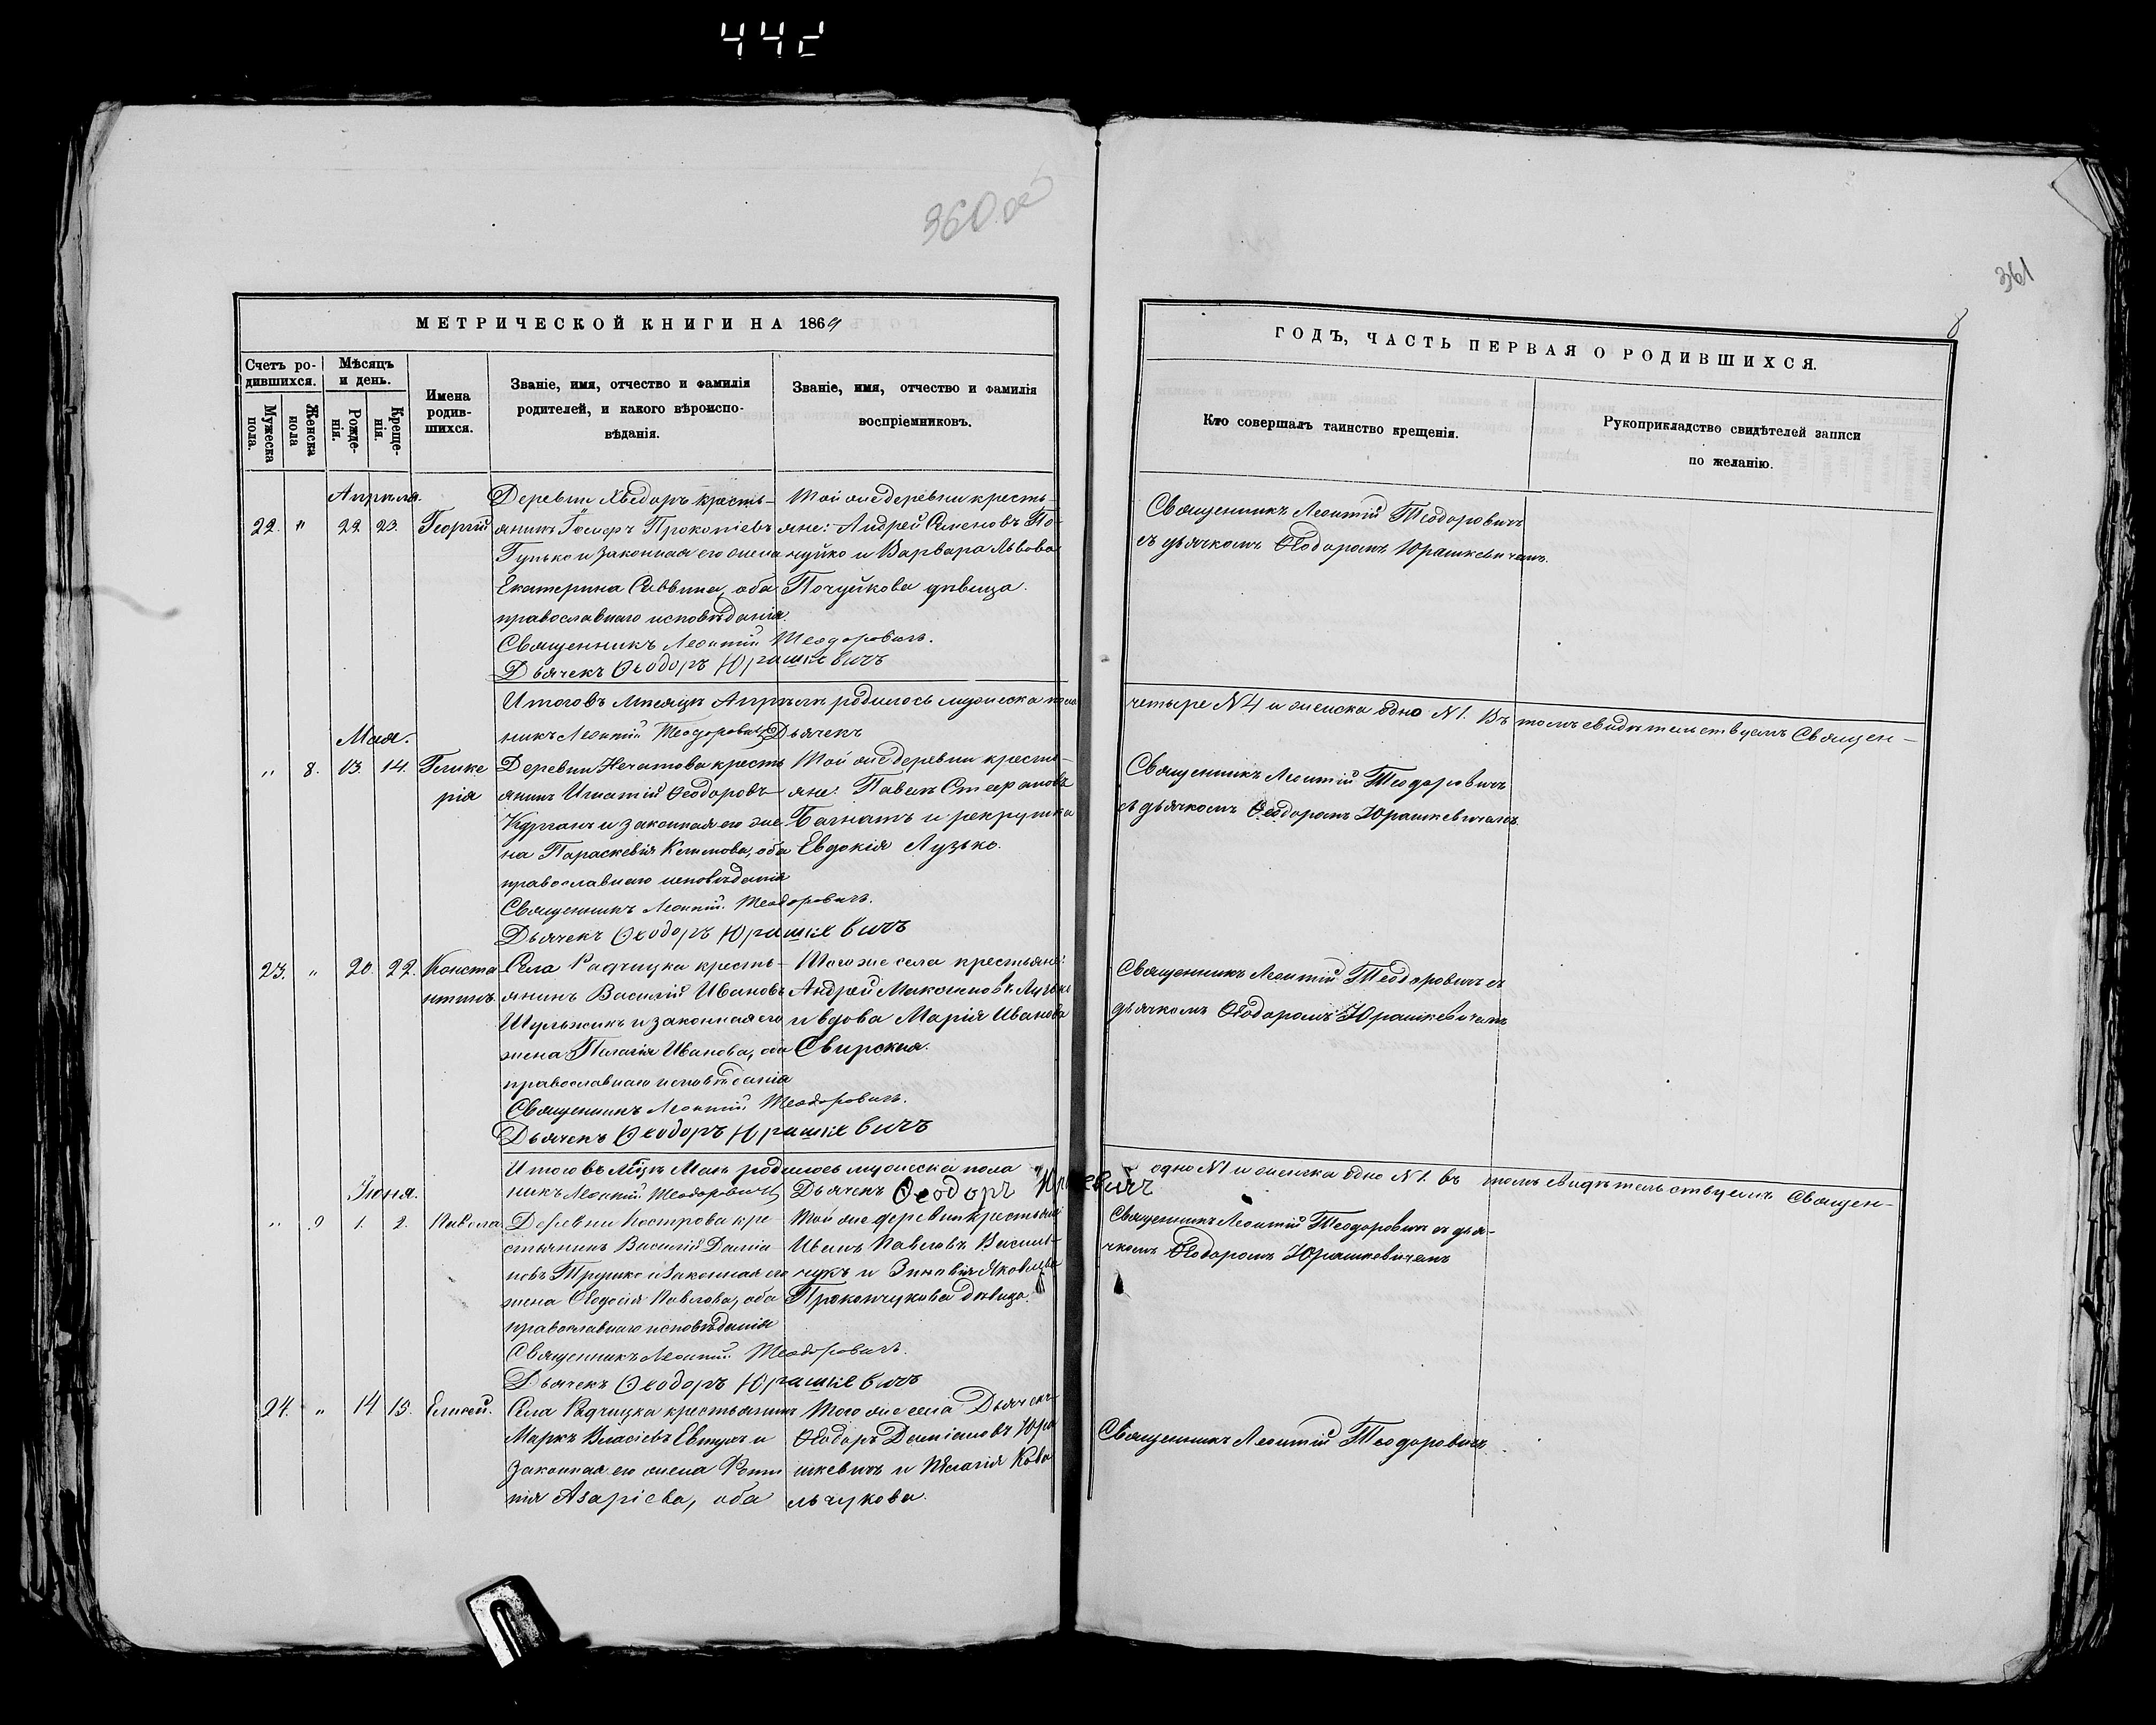 442
360 об
361
8
МЕТРИЧЕСКОЙ КНИГИ НА 1869
Счетъ родившихся.
Мѣсяцъ и день.
Мужеска пола.
Женска пола
Рожденія.
Крещенія.
Имена родившихся.
Званіе, имя, отчество и фамилія родителей, и какого вѣроисповѣданія.
Званіе, имя, отчество и фамилія воспріемниковъ.
ГОДЪ, ЧАСТЬ ПЕРВАЯ О РОДИВШИХСЯ.
Кто совершалъ таинство крещенія.
Рукоприкладство свидѣтелей записи по желанію.
Апрѣля.
22. " 22 23. Георгій
Деревни Хведоръ кресть-
янинъ Прокопіевъ
Гунько и законная его жена
Екатерина Саввина, оба
православнаго исповѣданія.
Священникъ Леонтій Теодоровичъ.
Дьячекъ Ѳеодоръ Юрашкевичъ
Той же деревни кресть-
яне: Андрей Семеновъ По-
чуйко и Варвара Львова
Почуйкова дѣвица.
Священникъ Леонтій Теодоровичъ
съ дьячкомъ Ѳеодоромъ Юрашкевичемъ.
Итого въ мѣсяцѣ Апрѣлѣ родилось мужеска пола четыре N 4 и женска одно N 1. Въ томъ свидѣтельствуемъ Священ-
никъ Леонтій Теодоровичъ Дьячекъ
Мая.
" 8. 13. 14. Глике
рія
Деревни Нечатова кресть
янинъ Игнатій Ѳеодоровъ
Курганъ и законная его же-
на Параскевія Климова, оба
православнаго исповѣданія
Священникъ Леонтій Теодоровичъ.
Дьячекъ Ѳеодоръ Юрашкевичъ
Той же деревни кресть-
яне: Павелъ Стефановъ
Багнатъ и рекрутка
Евдокія Лузько.
Священникъ Леонтій Теодоровичъ
съ дьячкомъ Ѳеодоромъ Юрашкевичемъ.
23. " 20. 22. Конста
нтинъ
Села Радчицка кресть-
янинъ Василій Ивановъ
Шульжикъ и законная его
жена Пелагія Иванова, оба
православнаго исповѣданія
Священникъ Леонтій Теодоровичъ.
Дьячекъ Ѳеодоръ Юрашкевичъ
Того же села крестьяне:
Андрей Максимовъ Лузько
и вдова Марія Иванова
Свирская.
Священникъ Леонтій Теодоровичъ съ
дьячкомъ Ѳеодоромъ Юрашкевичемъ
Итого въ м-цѣ Маѣ родилось мужеска пола одно N 1 и женска одно N 1. въ томъ свидѣтельствуемъ Священ-
никъ Леонтій Теодоровичъ Дьячекъ Ѳеодоръ Юрашкевичъ
Іюня.
" 9 1. 2.
Деревни Кострова кре-
стьянинъ Василій Даміа-
новъ Трушко и законная его
жена Ѳеодосія Павлова, оба
православнаго исповѣданія
Священникъ Леонтій Теодоровичъ.
Дьячекъ Ѳеодоръ Юрашкевичъ
Той же деревни крестьяне
Иванъ Павловъ Василь-
чукъ и Зиновія Яковлева
Прокопчукова дѣвица.
Священникъ Леонтій Теодоровичъ съ дья-
чкомъ Ѳеодоромъ Юрашкевичемъ
24. " 14 15. Елисей.
Села Радчицка крестьянинъ
Маркъ Власіевъ Евтухъ и
законная его жена
Азаріева, оба
Того же села Дьячекъ
Ѳеодоръ Даміановъ Юра
шкевичъ и Пелагія Кова
льчукова.
Священникъ Леонтій Теодоровичъ.